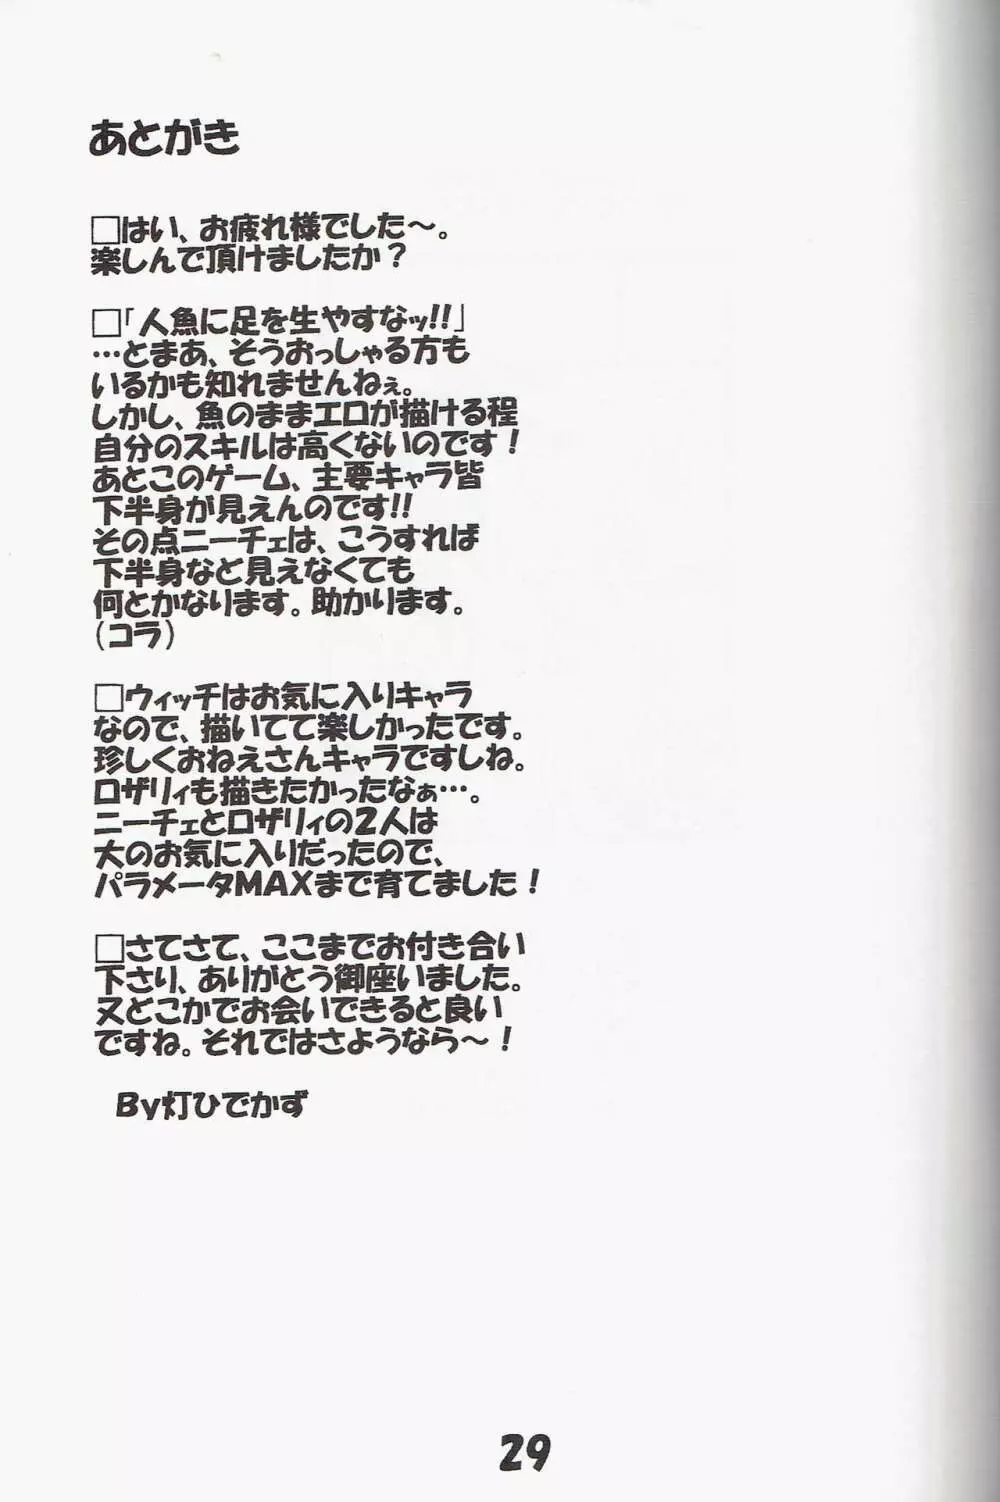 あとがき
□はい、お疲れ様でした～。
楽しんで頂けましたか？
□「人魚に足を生やすなッ!!」
…とまあ、そうおっしゃる方も
いるかも知れませんねぇ。
しかし、魚のままエロが描ける程
自分のスキルは高くないのです！
あとこのゲーム、主要キャラ皆
下半身が見えんのです!!
その点ニーチェは、こうすれば
下半身など見えなくても
何とかなります。助かります。
（コラ）
□ウィッチはお気に入りキャラ
なので、描いてて楽しかったです。
珍しくおねえさんキャラですしね。
ロザリィも描きたかったなぁ…。
ニーチェとロザリィの2人は
大のお気に入りだったので、
パラメータMAXまで育てました！
□さてさて、ここまでお付き合い
下さり、ありがとう御座いました。
又どこかでお会いできると良い
ですね。それではさようなら～！
By灯ひでかず
29